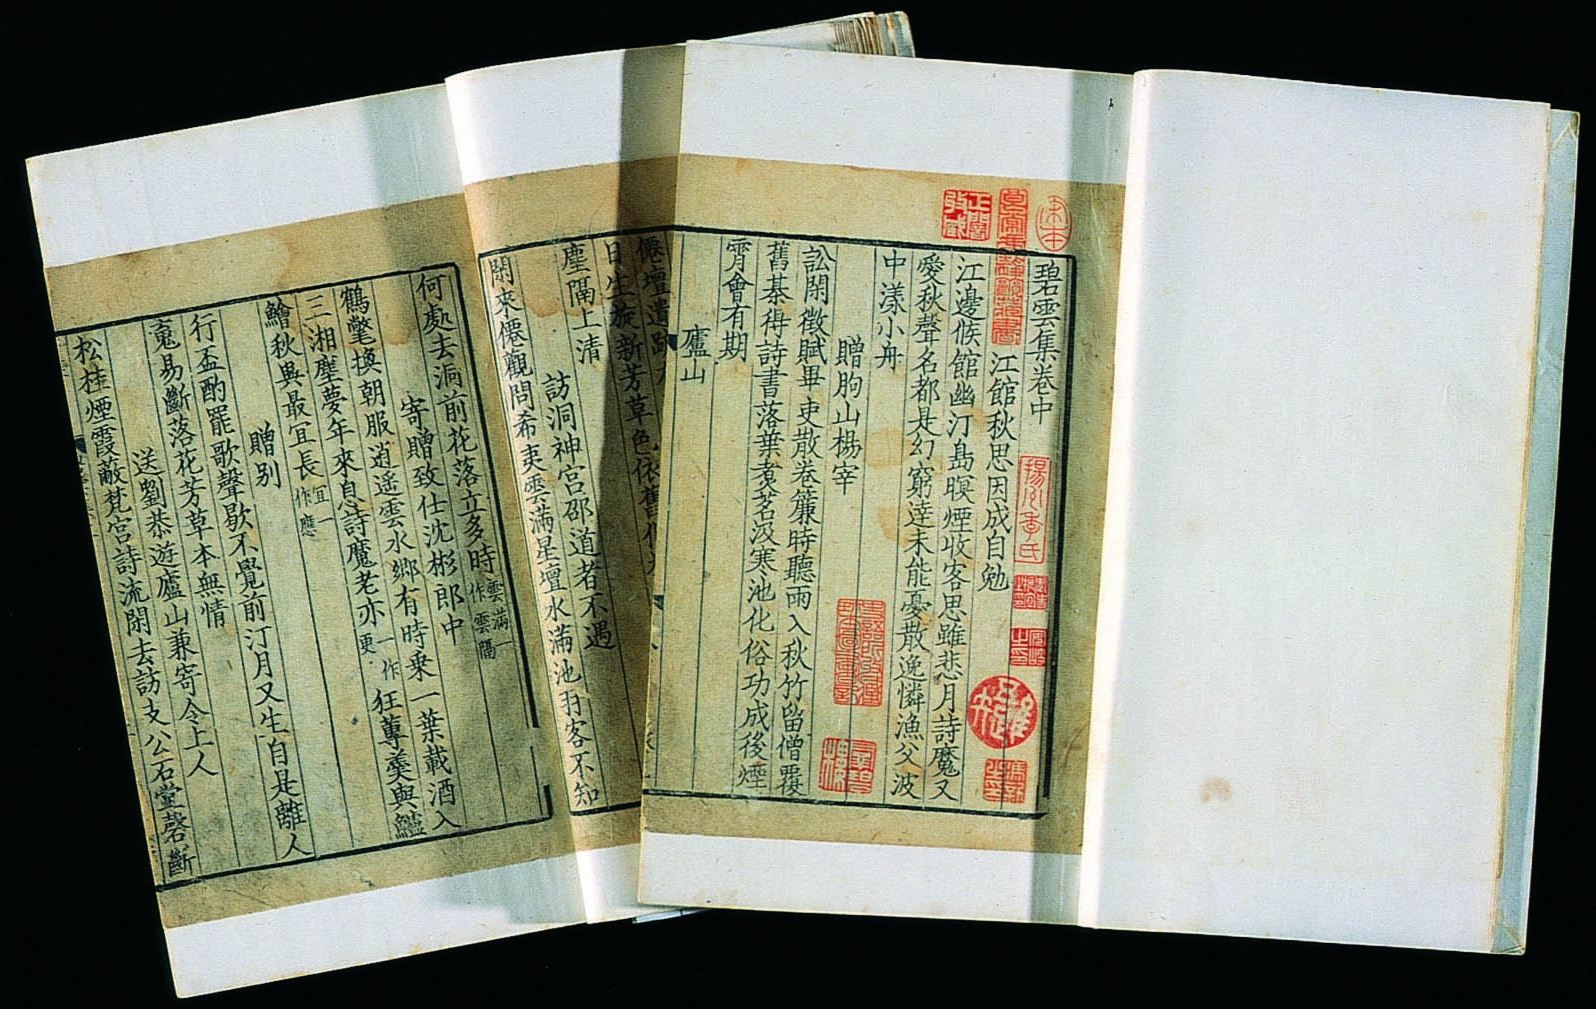 碧雲集卷中
江館秋思因成自勉
江邊候館幽汀島暝煙收客思雖悲月詩魔又
愛秋聲名都是幻窮達未能憂散逸憐漁父波
中漾小舟
贈朐山楊宰
訟閑徵賦畢吏散卷簾時聽雨入秋竹留僧覆
舊棊得詩書落葉煑茗汲寒池化俗功成後煙
霄會有期
廬山
僊壇遺跡
日生旋新芳草色依舊
塵隔上清
訪洞神宮邵道者不遇
閑來僊觀問希夷雲滿星壇水滿池羽客不知
何處去洞前花落立多時雲滿一作雲隔
寄贈致仕沈彬郎中
鶴氅換朝服逍遙雲水鄉有時乘一葉載酒入
三湘塵夢年來息詩魔老亦一作更狂蓴羹與鱸
鱠秋興最宜長宜一作應
贈別
行盃酌罷歌聲歇不覺前汀月又生自是離人
魂易斷落花芳草本無情
送劉恭遊廬山兼寄令上人
松桂煙霞蔽梵宮詩流閑去訪支公石堂磬斷
宋本
揚州季氏